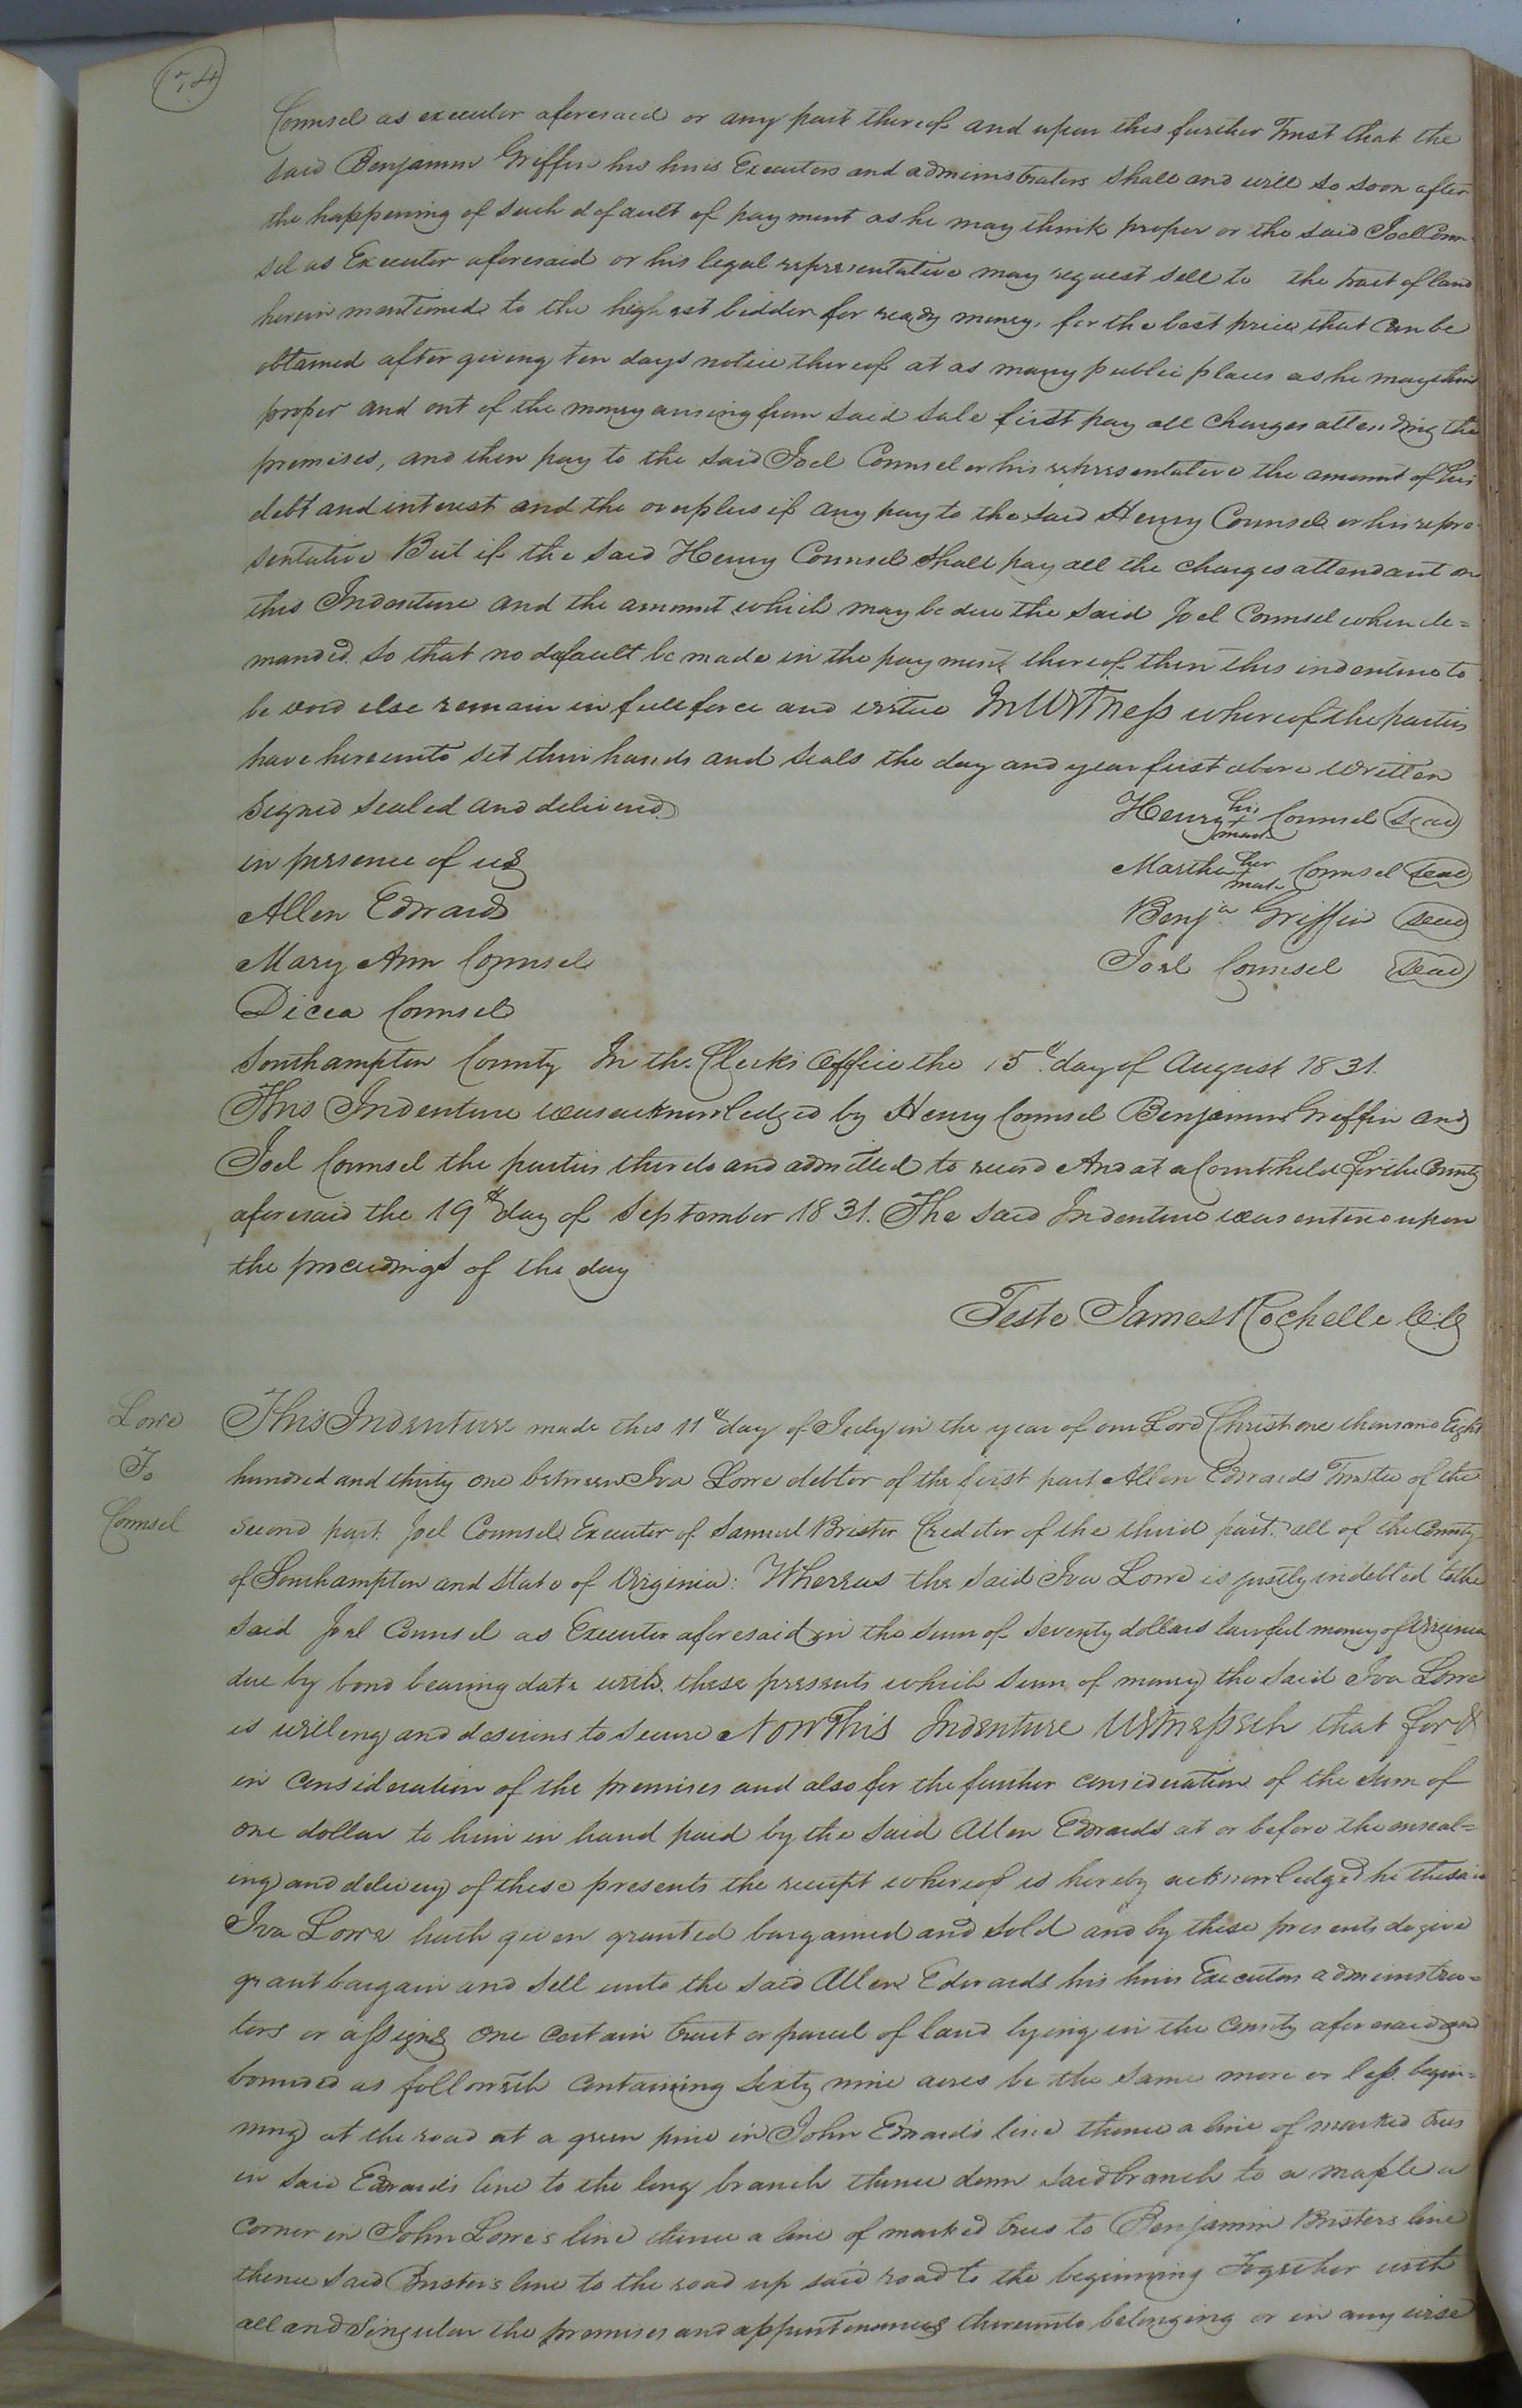 74
Counsel as executor aforesaid or any part thereof and upon this further Trust that the
said Benjamin Griffin his heirs Executors and administrators shall and will so soon after
the happening of such default of payment as he may think proper or the said Joel Coun-
sel as Executor aforesaid or his legal representative may request sell to the tract of land
herein mentioned to the highest bidder for ready money, for the best price that can be
obtained after giving ten days notice thereof at as many public places as he may think
proper and out of the money arising from said sale first pay all charges attending the
premises, and then pay to the said Joel Counsel or his representative the amount of his
debt and interest and the overplus if any pay to the said Henry Counsel or his repre-
sentative But if the said Henry Counsel shall pay all the charges attendant on
this Indenture and the amount which may be due the said Joel Counsel when de=
manded so that no default be made in the payment thereof then this indenture to
be void else remain in full force and virtue In Witness whereof the parties
have hereunto set their hands and seals the day and year first above written
Signed sealed and delivered
in presence of us
Allen Edwards
Mary Ann Counsel
Dicea Counsel
Henry his + mark Counsel Seal
Martha her + mark Counsel Seal
Benja Griffin Seal
Joel Counsel Seal
Southampton County In the Clerks Office the 15th day of August 1831.
This Indenture was acknowledged by Henry Counsel Benjamin Griffin and
Joel Counsel the parties thereto and admitted to record And at a Court held for the County
aforesaid the 19th day of September 1831. The said Indenture was entered upon
the proceedings of the day
Teste James Rochelle C.C.
Lowe
To
Counsel
This Indenture made this 11th day of July in the year of our Lord Christ one thousand Eight
hundred and thirty one between Iva Lowe debtor of the first part Allen Edwards Trustee of the
second part. Joel Counsel Executor of Samuel Brister Creditor of the third part. all of the County
of Southampton and State of Virginia: Whereas the said Iva Lowe is justly indebted to the
said Joel Counsel as Executor aforesaid in the sum of Seventy dollars lawful money of Virginia
due by bond bearing date with these presents which sum of money the said Iva Lowe
is willing and desirous to secure Now This Indenture Witnesseth that for &
in consideration of the premises and also for the further consideration of the sum of
one dollar to him in hand paid by the said Allen Edwards at or before the enseal=
ing and delivery of these presents the receipt whereof is hereby acknowledged he the said
Iva Lowe hath given granted bargained and sold and by these presents do give
grant bargain and sell unto the said Allen Edwards his heirs Executors administra=
tors or assigns one certain tract or parcel of land lying in the county aforesaid and
bounded as followeth containing Sixty nine acres be the same more or less. begin=
ning at the road at a green pine in John Edwards line thence a line of marked trees
in said Edwards line to the long branch thence down said branch to a maple a
corner in John Lowes line thence a line of marked trees to Benjamin Bristers line
thence said Bristers line to the road up said road to the beginning Together with
all and Singular the premises and appurtenances thereunto belonging or in any wise